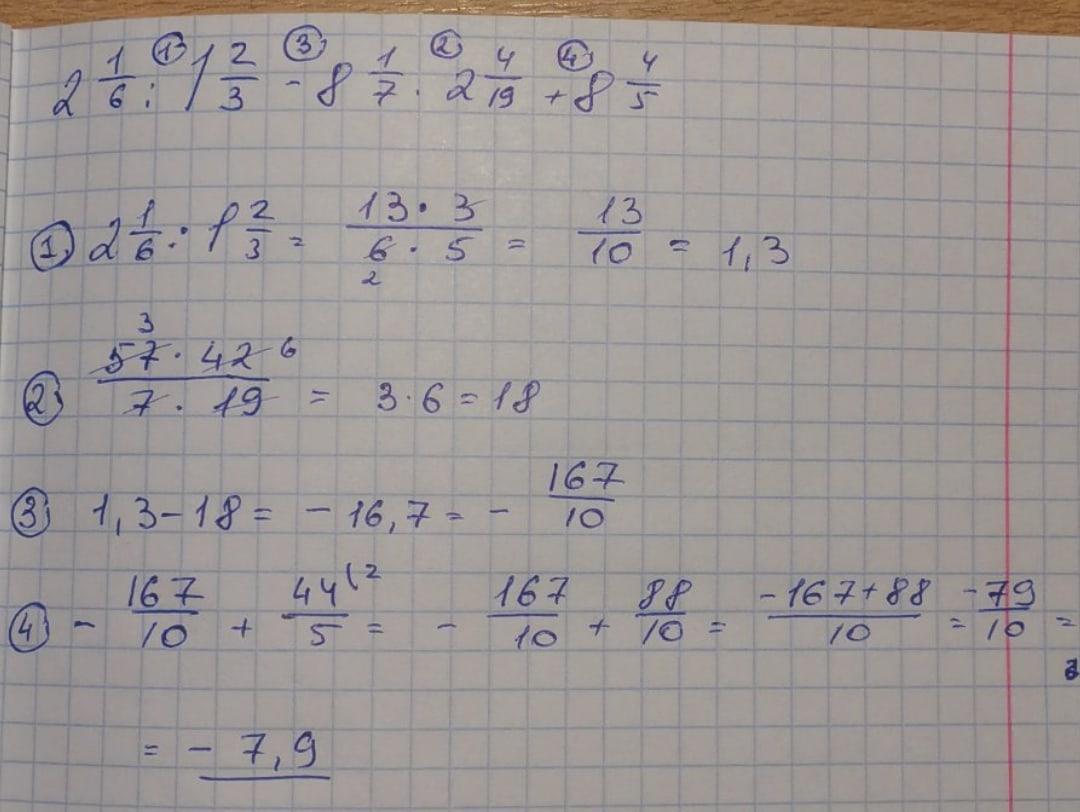 2 1/6 : 1 2/3 - 8 1/7 · 2 4/19 + 8 4/5
① ③ ② ④
① 2 1/6 : 1 2/3 = 13 · 3 / 6 · 5 = 13/10 = 1,3
2
3
② 57 · 42 6 / 7 · 19 = 3 · 6 = 18
③ 1,3 - 18 = - 16,7 = - 167/10
④ - 167/10 + 44/5 (2 = - 167/10 + 88/10 = -167+88 / 10 = -79/10 =
= - 7,9